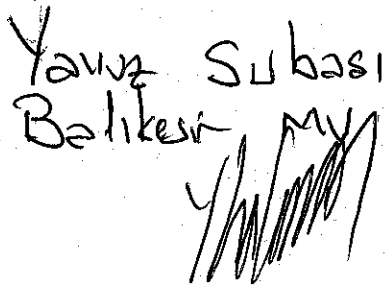 Yavuz Subası
Balıkesir MV